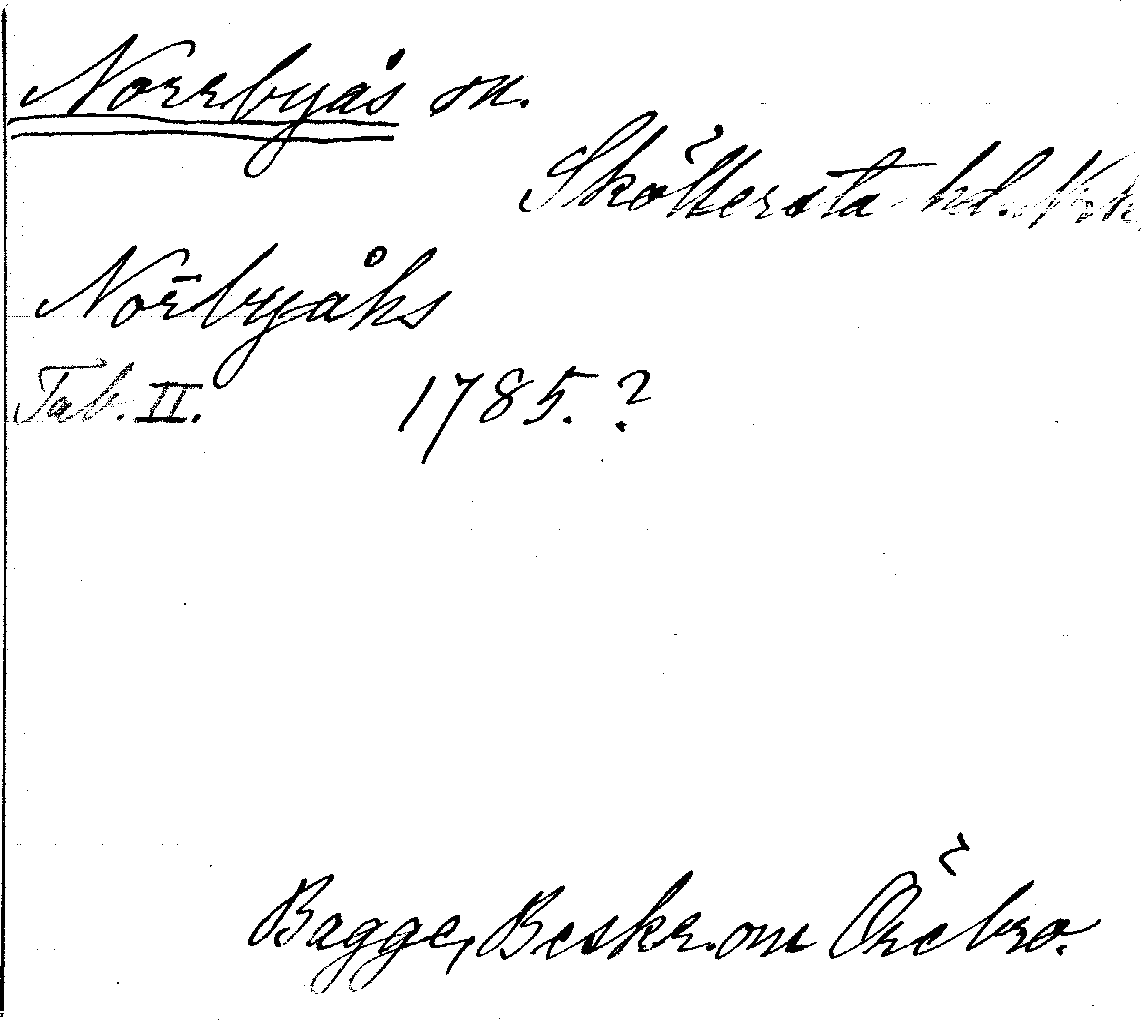 Norrbyås sn.
Sköllersta hd. Nrk.
Nor̄byåhs
Tab. II. 1785.?
Bagge, Beskr. om Örebro.